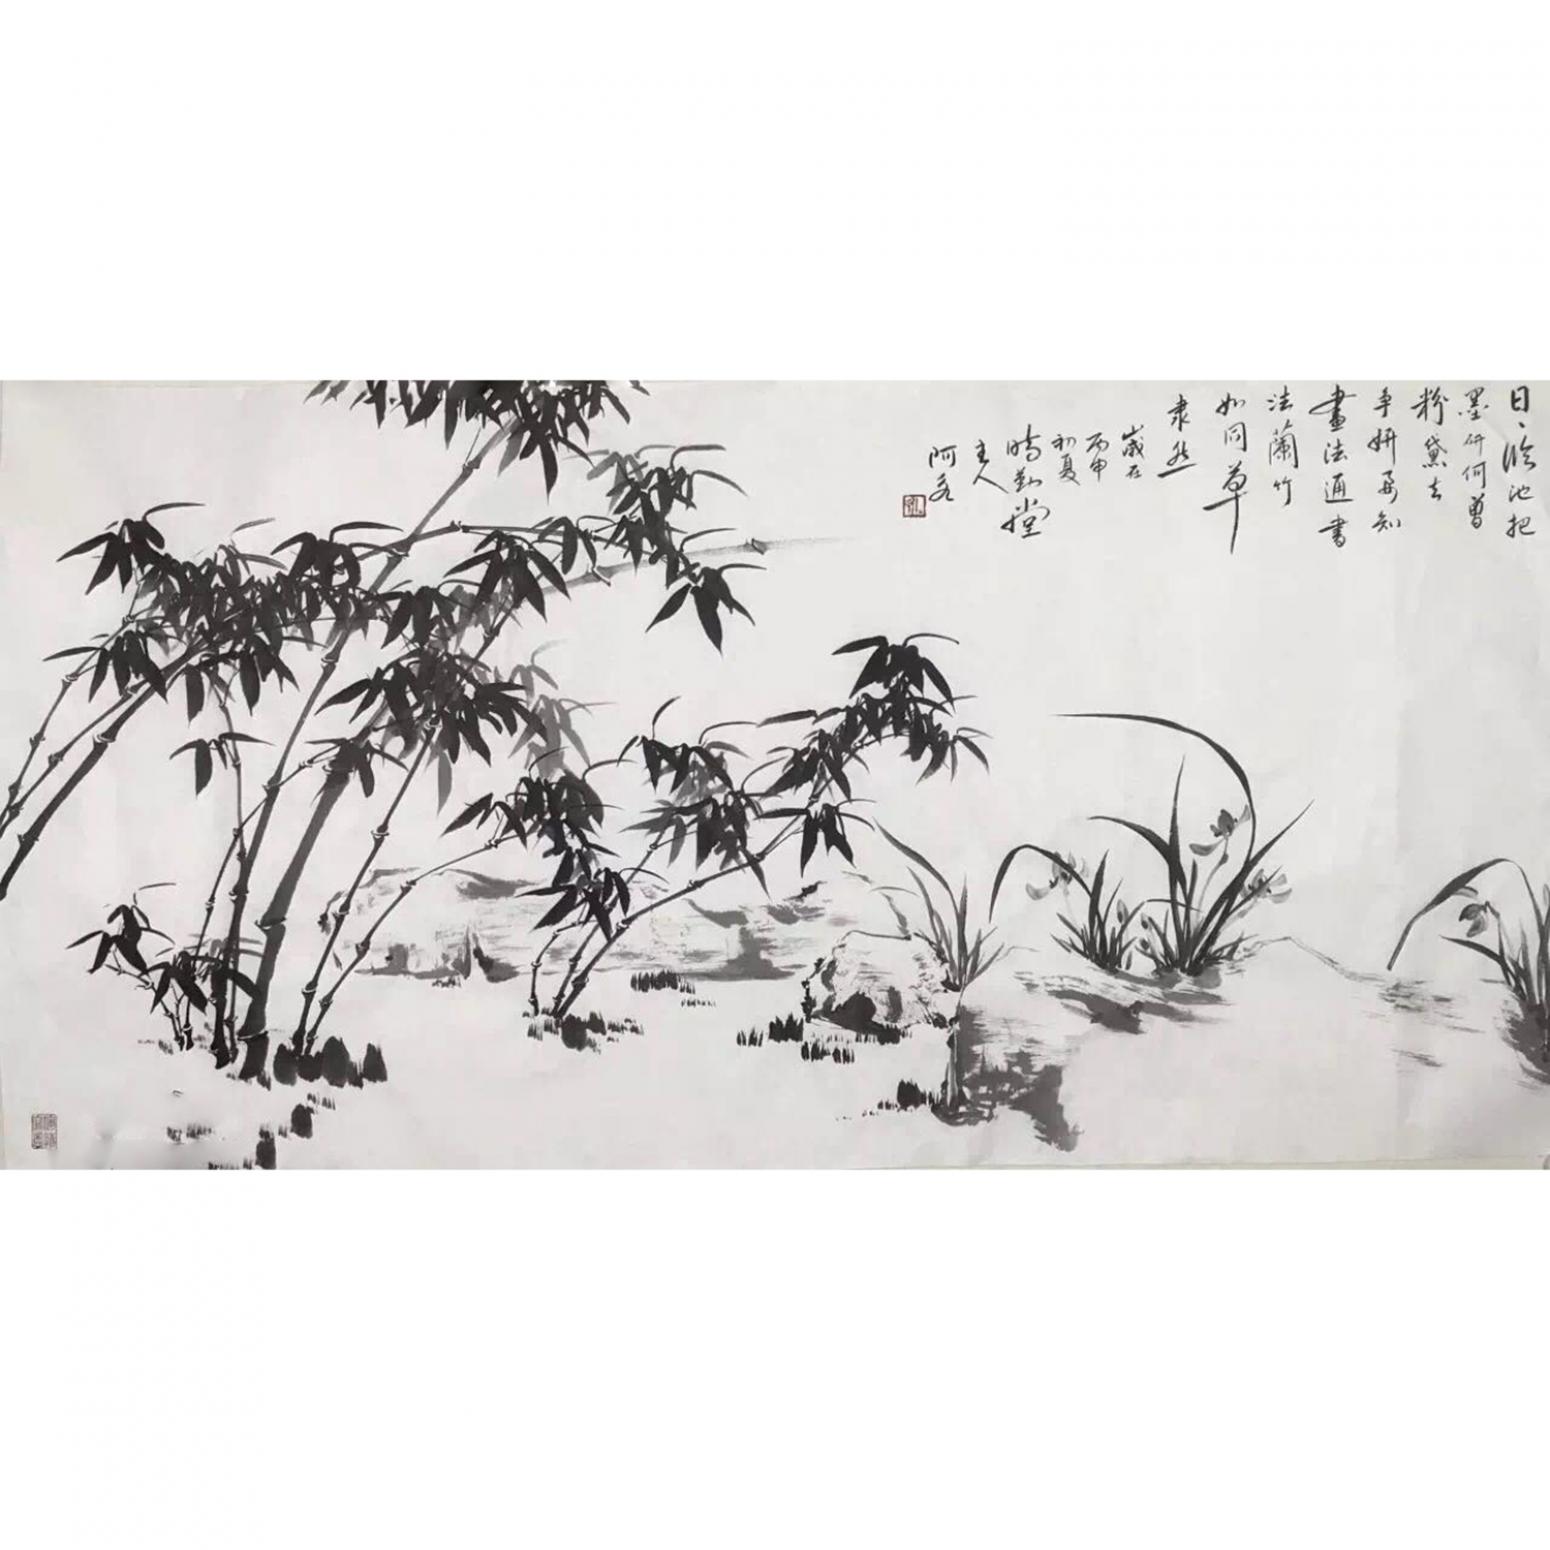 日、临池把
墨研何曾
粉黛去
争妍要知
畫法通書
法蘭竹
如同草
隶然
歲在
丙申
初夏
勤堂
主人
阿